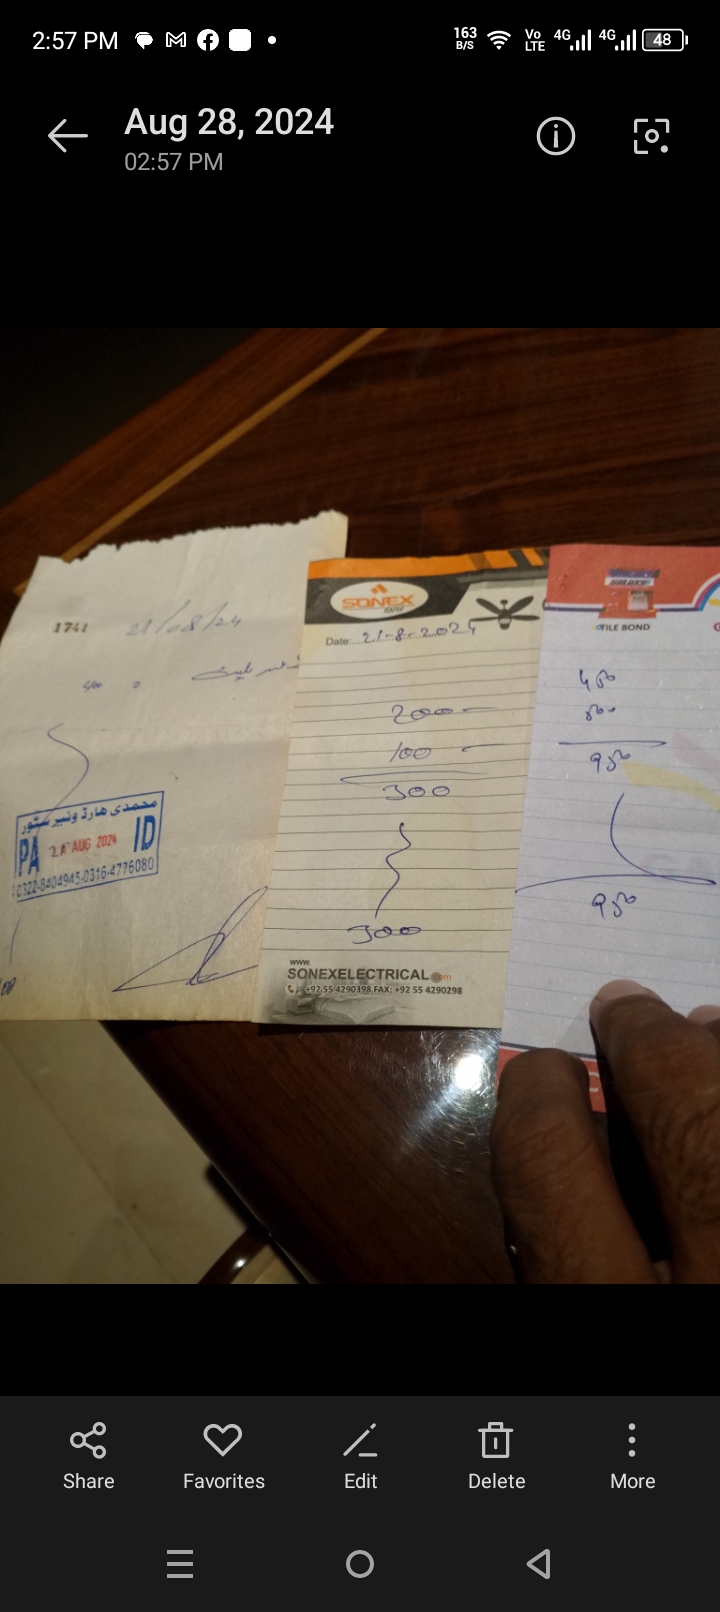 2:57 PM
163 B/S Vo LTE 4G 4G 48
Aug 28, 2024
02:57 PM
1741 21/08/24
محمدی ھارڈ وئیر سٹور
PAID
AUG 2024
0322-8404945-0316-4776080
SONEX
Date: 21-8-2024
200
100
300
300
www.
SONEXELECTRICAL.com
+92 55 4290398 FAX: +92 55 4290298
TILE BOND
450
500
950
950
Share
Favorites
Edit
Delete
More